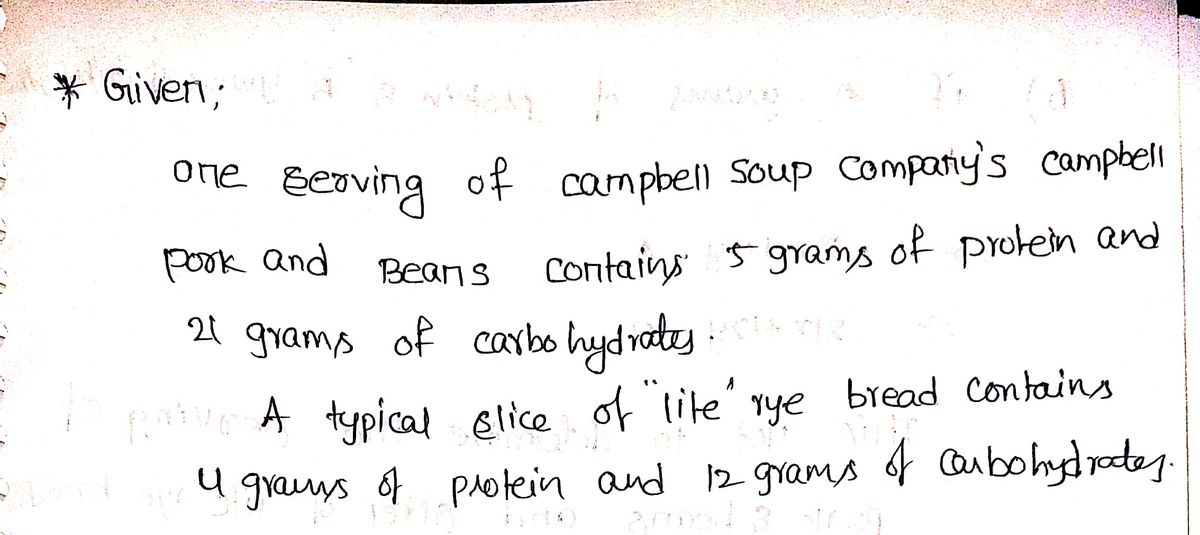 * Given;
one serving of campbell soup company's campbell
pork and Beans contains 5 grams of protein and
21 grams of carbohydrates.
A typical slice of "lite" rye bread contains
4 grams of protein and 12 grams of carbohydrates.